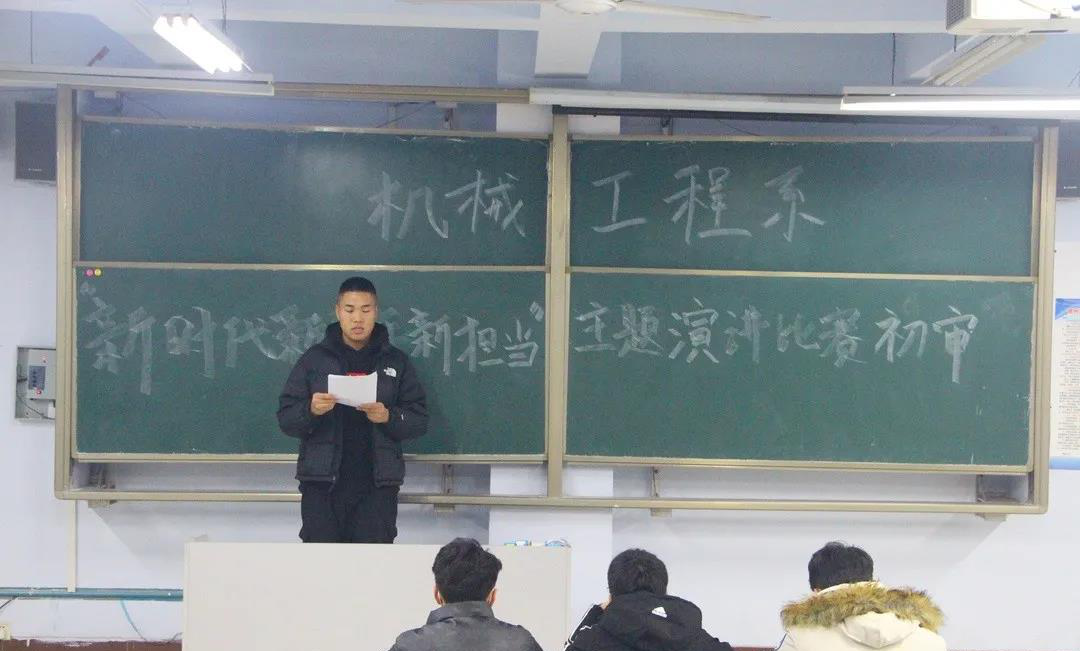 机械工程系
"新时代新担当"主题演讲比赛初审
THE NORTH FACE